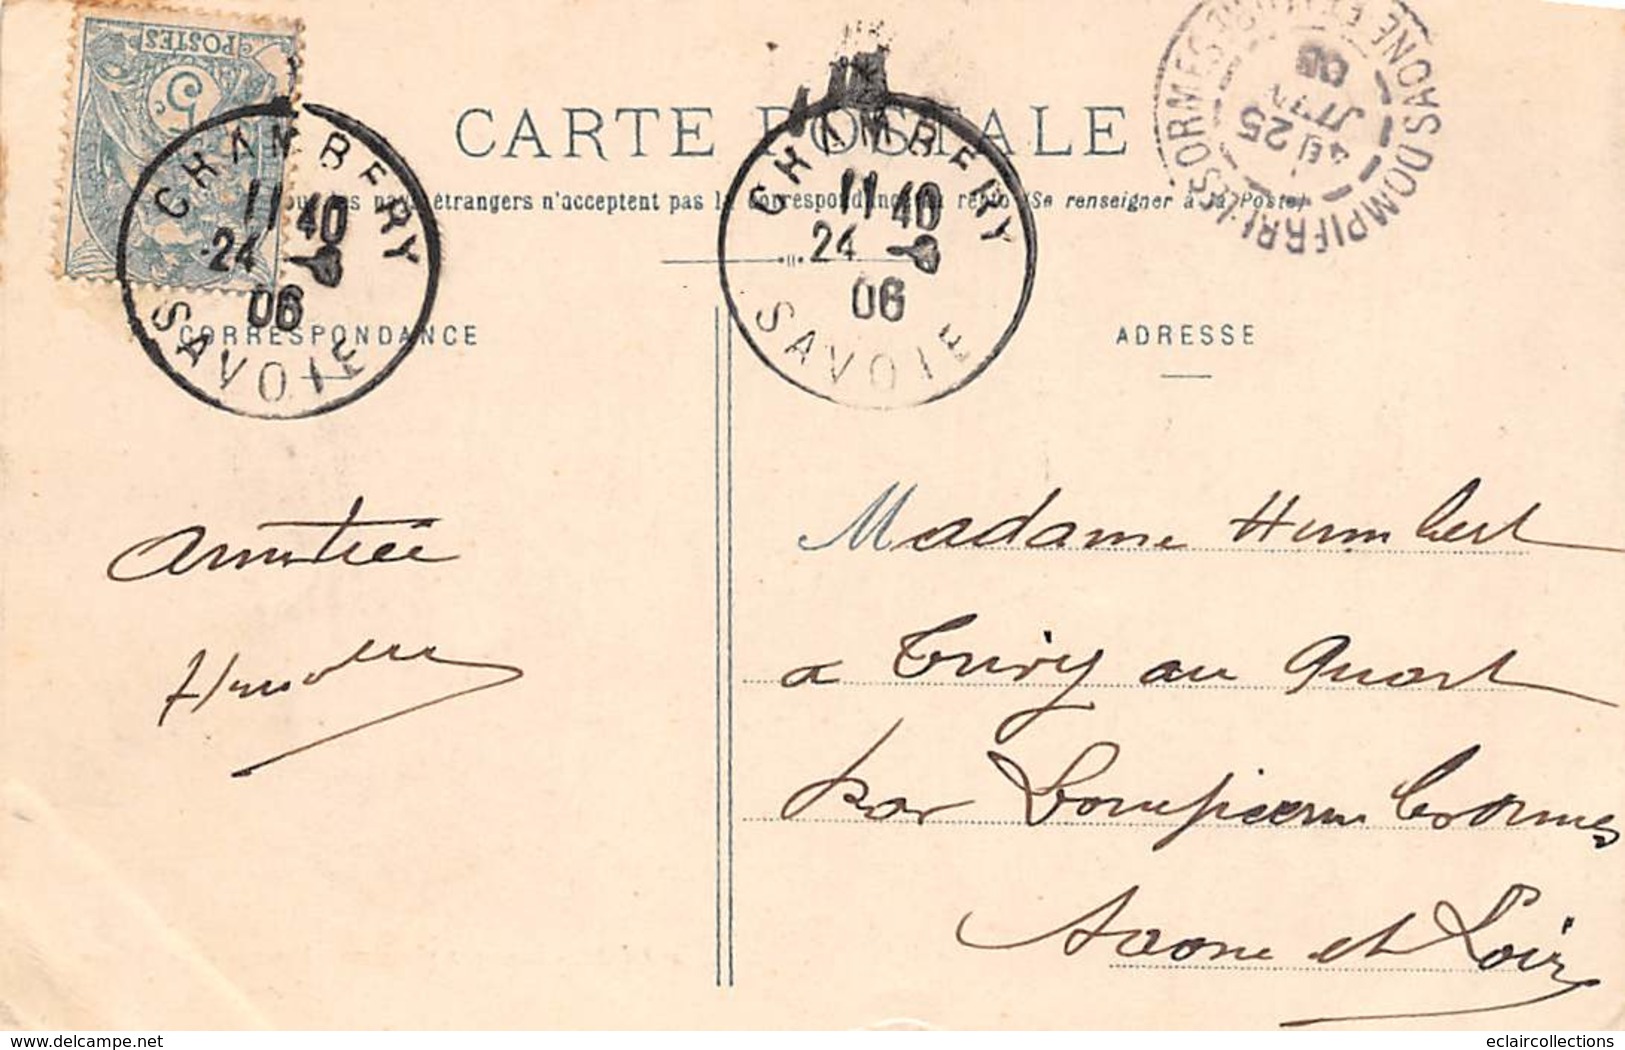 POSTES
5c
CARTE POSTALE
étrangers n'acceptent pas la correspondance au recto (Se renseigner à la Poste)
CHAMBERY
11 40
24
06
SAVOIE
CHAMBERY
11 40
24
06
SAVOIE
DOMPIERRE-LES-ORMES SAONE-ET-LOIRE
4E
25
JUIN
06
CORRESPONDANCE
ADRESSE
Amitiés
Madame Humbert
a Trivy au Quart
par Dompierre les Ormes
Saone et Loire
eclaircollections